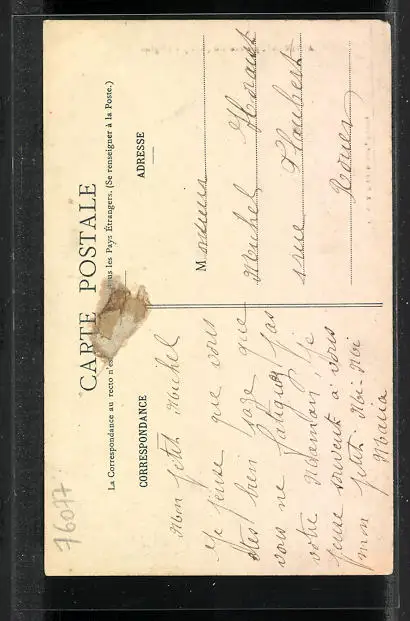 CARTE POSTALE
La Correspondance au recto n'es tous les Pays Étrangers. (Se renseigner à la Poste.)
CORRESPONDANCE
Mon petit Michel
Je pense que vous
etes bien sage que
vous ne fatiguez pas
votre Maman, je
pense souvent a vous
mon petit Mi-Mi
Maria
ADRESSE
Monsieur
Michel
rue Flaubert
Rouen
76077